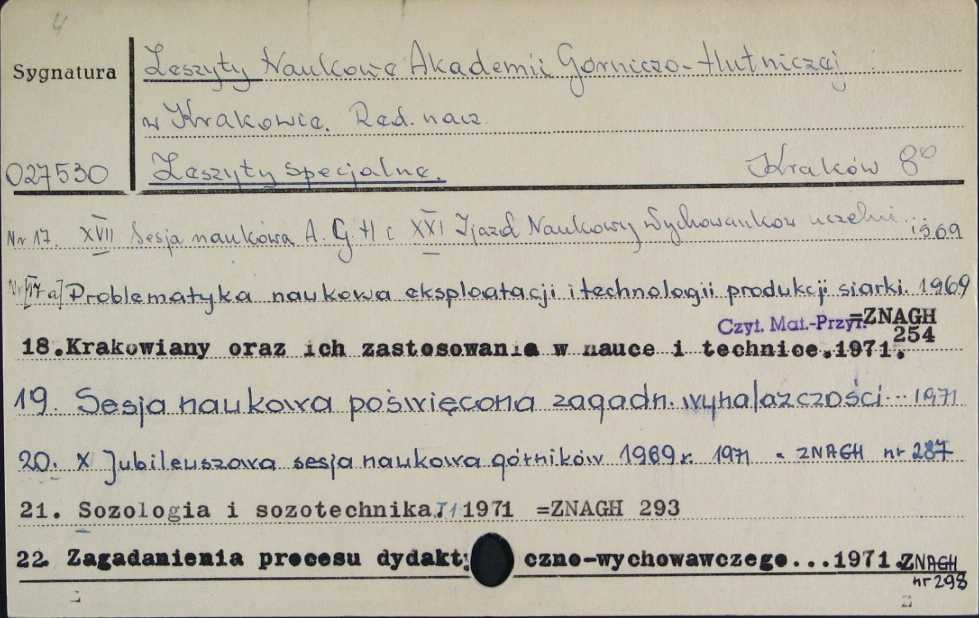 4
Sygnatura
Zeszyty Naukowe Akademii Górniczo-Hutniczej
w Krakowie. Red. nacz.
027530
Zeszyty specjalne.
Kraków 8°
Nr 17. XVII Sesja naukowa A.G.H i XVI Zjazd Naukowy Wychowanków uczelni... 1969
Nr [17a] Problematyka naukowa eksploatacji i technologii produkcji siarki. 1969
Czyt. Mat.-Przyr.
=ZNAGH
254
18.Krakowiany oraz ich zastosowania w nauce i technice.1971.
19. Sesja naukowa poświęcona zagadn. wynalazczości... 1971
20. X Jubileuszowa sesja naukowa górników 1969 r. 1971 = ZNAGH nr 287
21. Sozologia i sozotechnika. 1971 =ZNAGH 293
22. Zagadanienia procesu dydakty czno-wychowawczego...1971.ZNAGH
nr 298